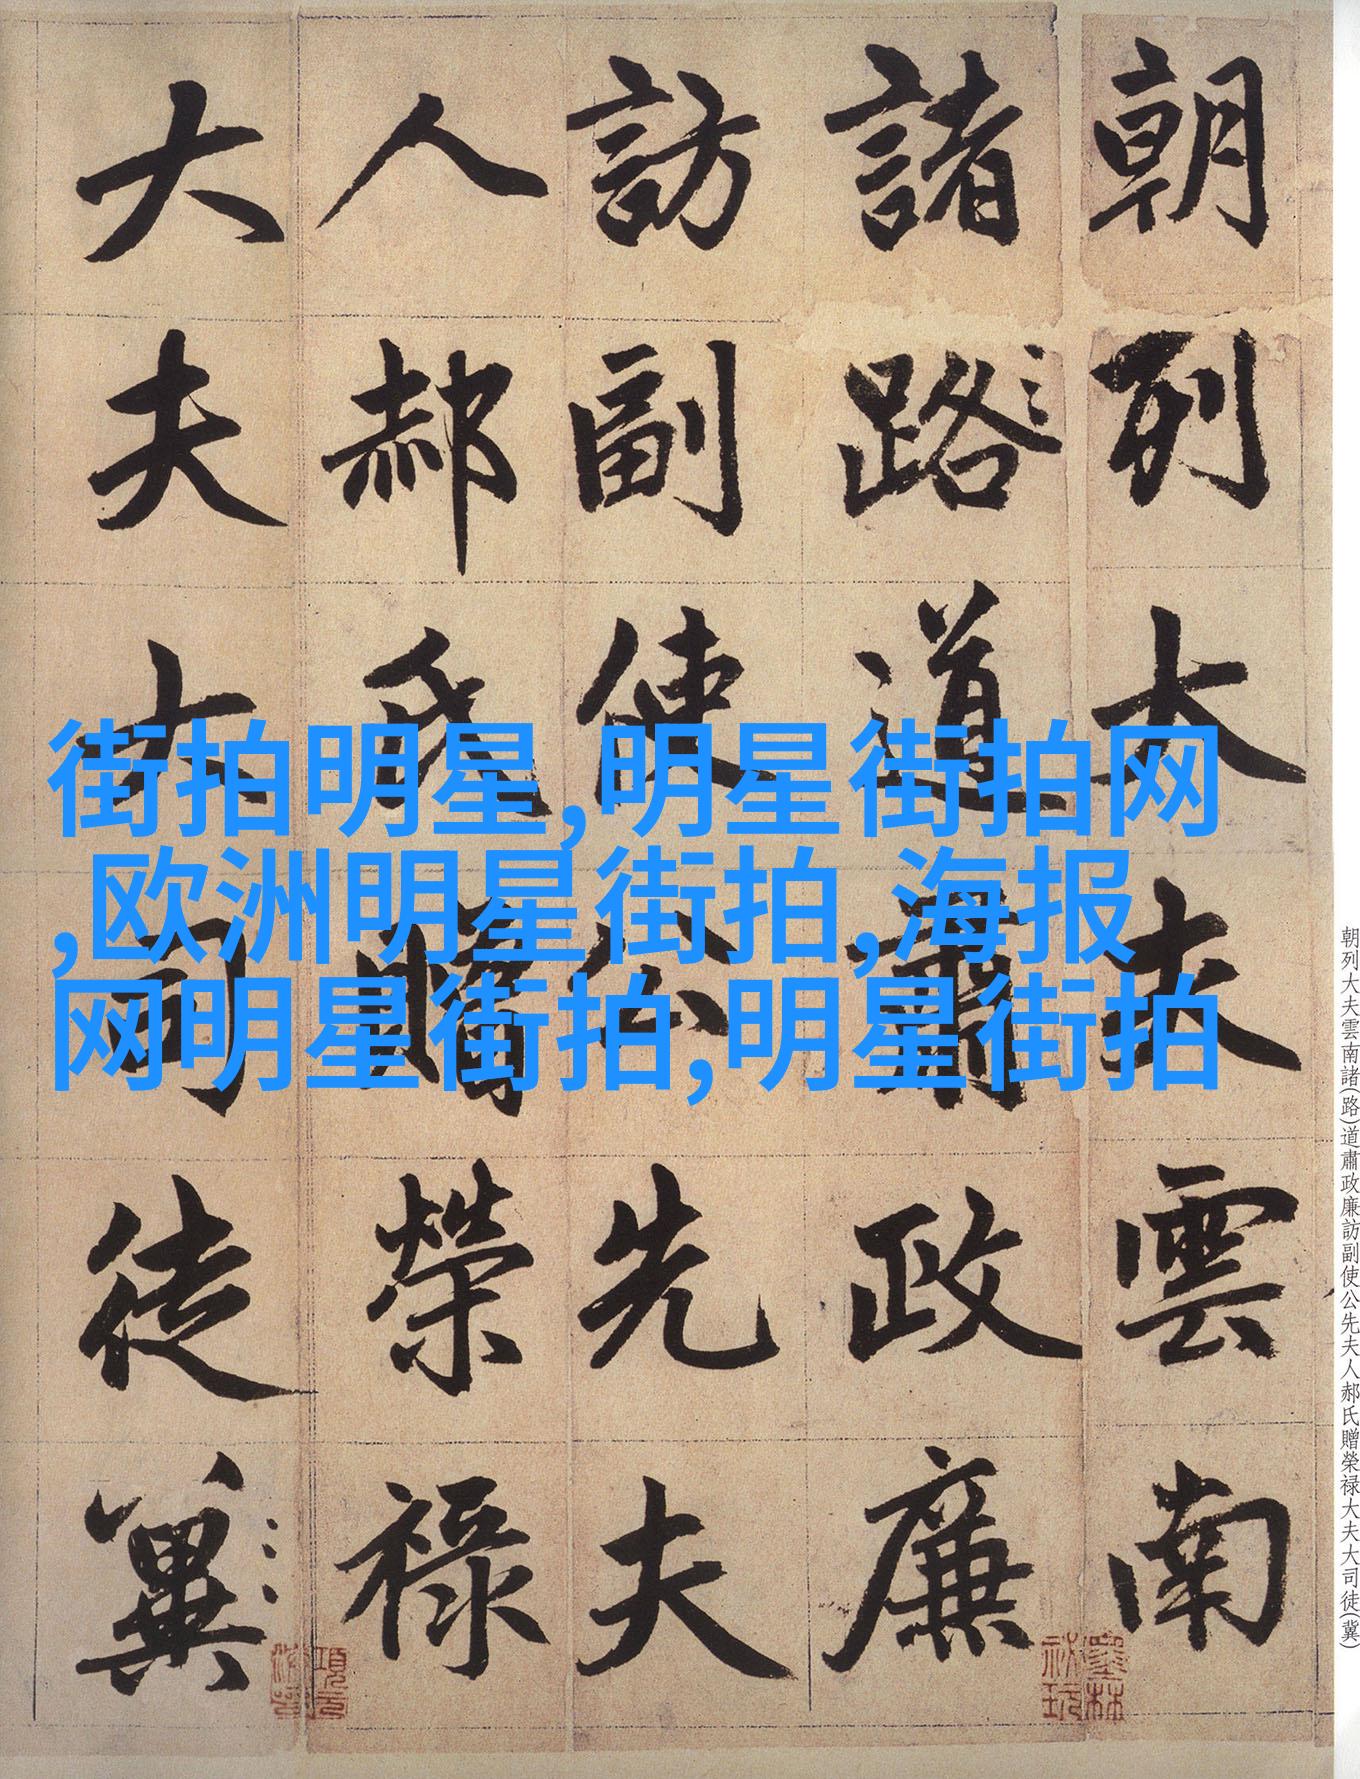 朝列大夫雲南
諸路道肅政廉
訪副使公先夫
人郝氏贈榮禄
大夫大司徒冀
街拍明星,明星街拍网
,欧洲明星街拍,海报
网明星街拍,明星街拍
朝列大夫雲南諸(路)道肅政廉訪副使公先夫人郝氏贈榮禄大夫大司徒(冀)